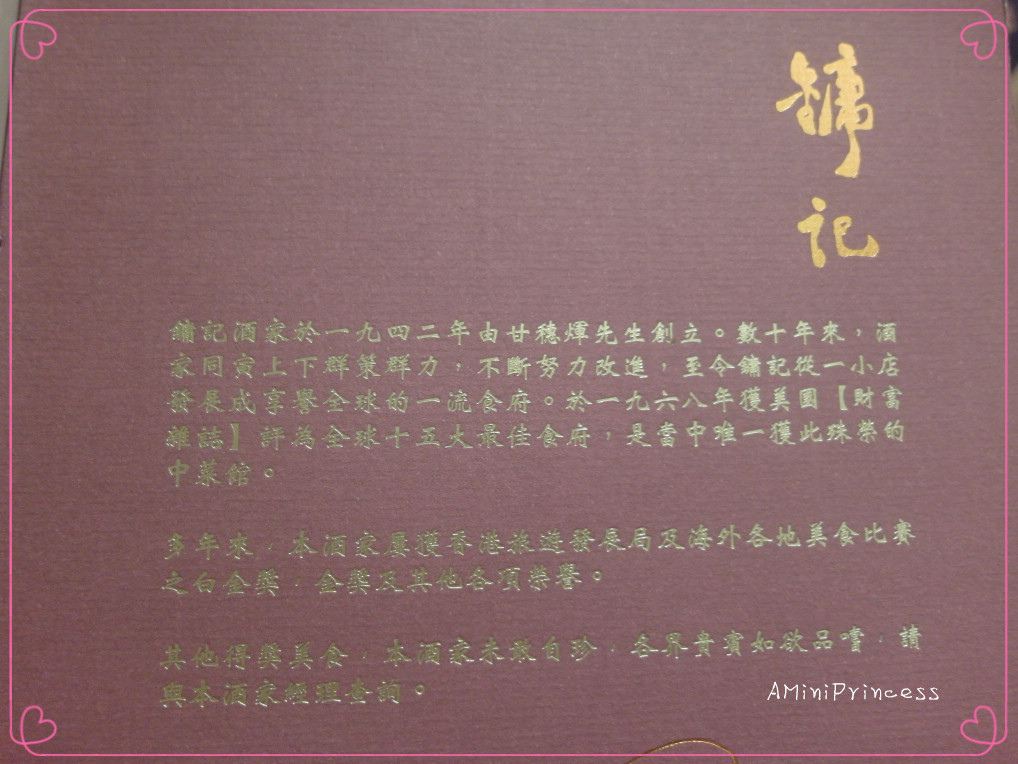 鏞記
鏞記酒家於一九四二年由甘穗煇先生創立。數十年來，酒
家同寅上下群策群力，不斷努力改進，至今鏞記從一小店
發展成享譽全球的一流食府。於一九六八年獲美國【財富
雜誌】評為全球十五大最佳食府，是當中唯一獲此殊榮的
中菜館。
多年來，本酒家屢獲香港旅遊發展局及海外各地美食比賽
之白金獎，金獎及其他各項榮譽。
其他得獎美食，本酒家未敢自珍，各界貴賓如欲品嚐，請
與本酒家經理查詢。
AMiniPrincess